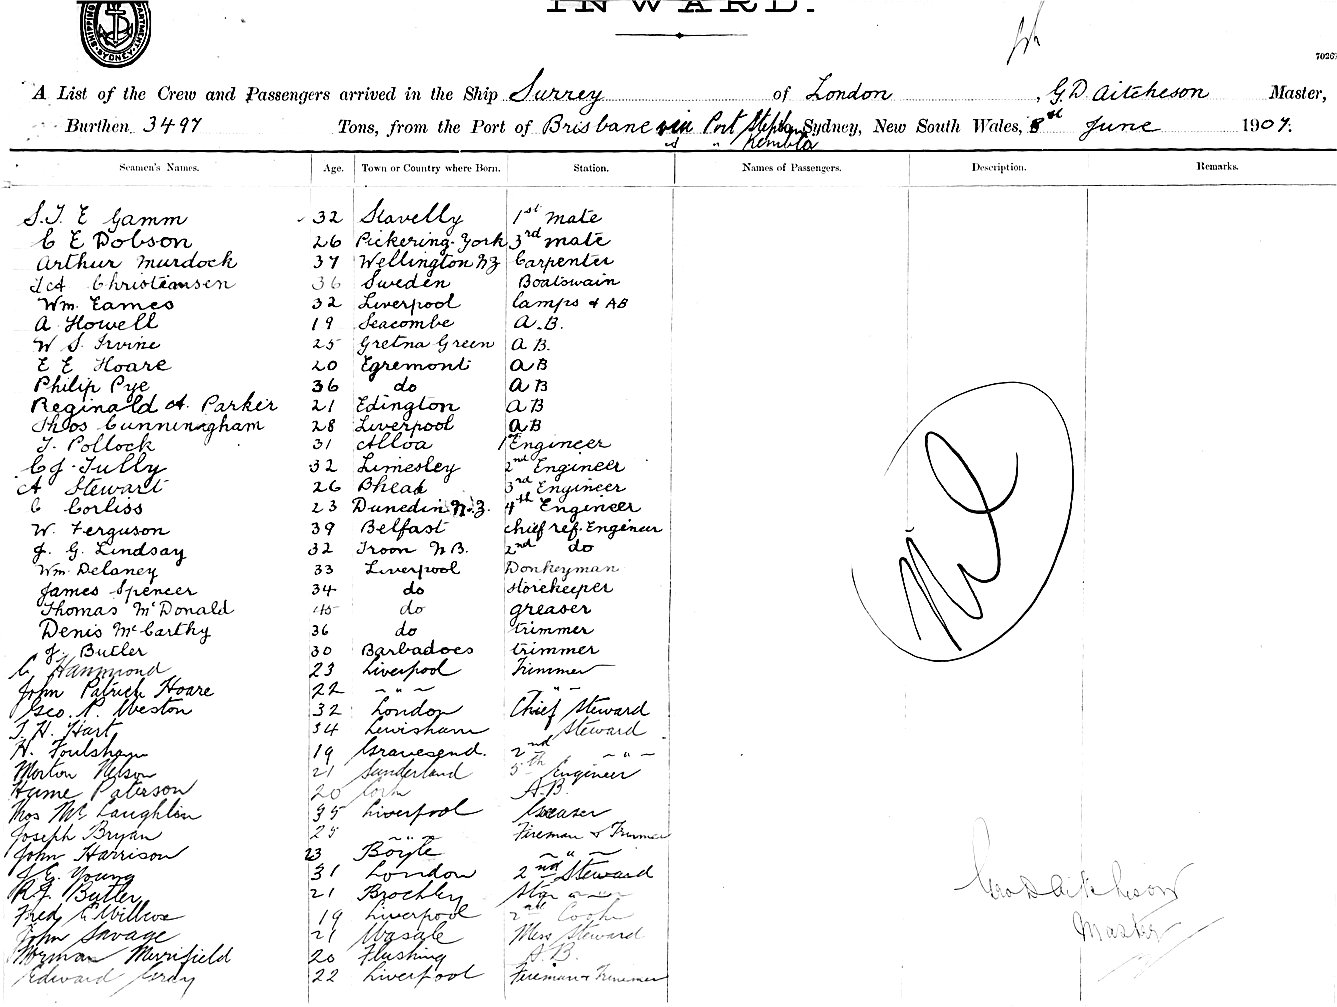 INWARD.
A List of the Crew and Passengers arrived in the Ship Surrey of London, G.D. Aitcheson Master,
Burthen 3497 Tons, from the Port of Brisbane via Port Stephen Sydney, New South Wales, 8th June 1907.
" Kembla
Seamen's Names. Age. Town or Country where Born. Station. Names of Passengers. Description. Remarks.
S.T. E Gamm 32 Stavelly 1st mate
C E Dobson 26 Pickering York 3rd mate
Arthur Murdock 37 Wellington NZ Carpenter
Christiansen 36 Sweden Boatswain
Wm. Eames 32 Liverpool lamps & AB
A Howell 19 Seacombe A.B.
W S Irvine 25 Gretna Green A B.
E E Hoare 20 Egremont A B
Philip Pye 36 do A B
Reginald A. Parker 21 Edington A B
Thos Cunningham 28 Liverpool A B
T. Pollock 31 Alloa 1 Engineer
C J. Tully 32 Limesley 2nd Engineer
A Stewart 26 Bheak 3rd Engineer
C Corliss 23 Dunedin N.Z. 4th Engineer
W. Ferguson 39 Belfast chief ref. Engineer
J. G. Lindsay 32 Troon N B. 2nd do
Wm. Delaney 33 Liverpool Donkeyman
James Spencer 34 do storekeeper
Thomas McDonald 45 do greaser
Denis McCarthy 36 do trimmer
J. Butler 30 Barbadoes trimmer
C. Hammond 23 Liverpool Trimmer
John Patrick Hoare 22 " "
Geo. P. Weston 32 London Chief Steward
T. H. Hart 34 Lewisham Steward
H. Foulsham 19 Gravesend. 2nd "
Morton Nelson 21 Sunderland 5th Engineer
Hume Paterson 20 A.B.
Thos McLaughlin 35 Liverpool Greaser
Joseph Bryan 25 " Fireman & Trimmer
John Harrison 23 Boyle "
J. E. Young 31 London 2nd Steward
R. J. Butler 21 Brockley "
Fred C Willcox 19 Liverpool 2nd Cook
John Savage 21 Mess Steward
Norman Merrifield 20 Flushing A.B.
Edward Gray 22 Liverpool Fireman & Trimmer
Nil
Geo D Aitcheson
Master